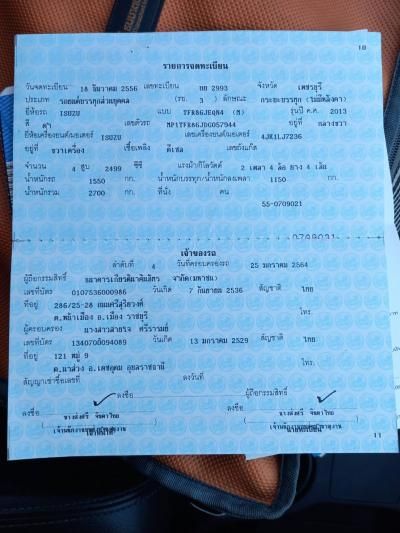 10
รายการจดทะเบียน
วันจดทะเบียน 18 ธันวาคม 2556 เลขทะเบียน บย 2993 จังหวัด เพชรบุรี
ประเภท รถยนต์บรรทุกส่วนบุคคล (รย. 3 ) ลักษณะ กระบะบรรทุก (ไม่มีหลังคา)
ยี่ห้อรถ ISUZU แบบ TFR86JEQN4 (M) รุ่นปี ค.ศ. 2013
สี ดำ เลขตัวรถ MP1TFR86JDG057944 อยู่ที่ กลางขวา
ยี่ห้อเครื่องยนต์/มอเตอร์ ISUZU เลขเครื่องยนต์/มอเตอร์ 4JK1LJ7236
อยู่ที่ ขวาเครื่อง เชื้อเพลิง ดีเซล เลขถังแก๊ส
จำนวน 4 สูบ 2499 ซีซี แรงม้า/กิโลวัตต์ 2 เพลา 4 ล้อ ยาง 4 เส้น
น้ำหนักรถ 1550 กก. น้ำหนักบรรทุก/น้ำหนักลงเพลา 1150 กก.
น้ำหนักรวม 2700 กก. ที่นั่ง คน
55-0709021
เจ้าของรถ
ลำดับที่ 4 วันที่ครอบครองรถ 25 มกราคม 2564
ผู้ถือกรรมสิทธิ์ ธนาคารเกียรตินาคินภัทร จำกัด(มหาชน)
เลขที่บัตร 0107536000986 วันเกิด 7 กันยายน 2536 สัญชาติ ไทย
ที่อยู่ 286/25-28 ถนนศรีสุริยวงศ์
ต.หน้าเมือง อ.เมือง ราชบุรี โทร.
ผู้ครอบครอง นางสาวสายรุ้ง
เลขที่บัตร 1340700094089 วันเกิด 13 มกราคม 2529 สัญชาติ ไทย
ที่อยู่ 121 หมู่ 9
ต.นาส่วง อ.เดชอุดม อุบลราชธานี โทร.
สัญญาเช่าซื้อเลขที่ ลงวันที่
ลงชื่อ ผู้ถือกรรมสิทธิ์
ลงชื่อ ลงชื่อ
11